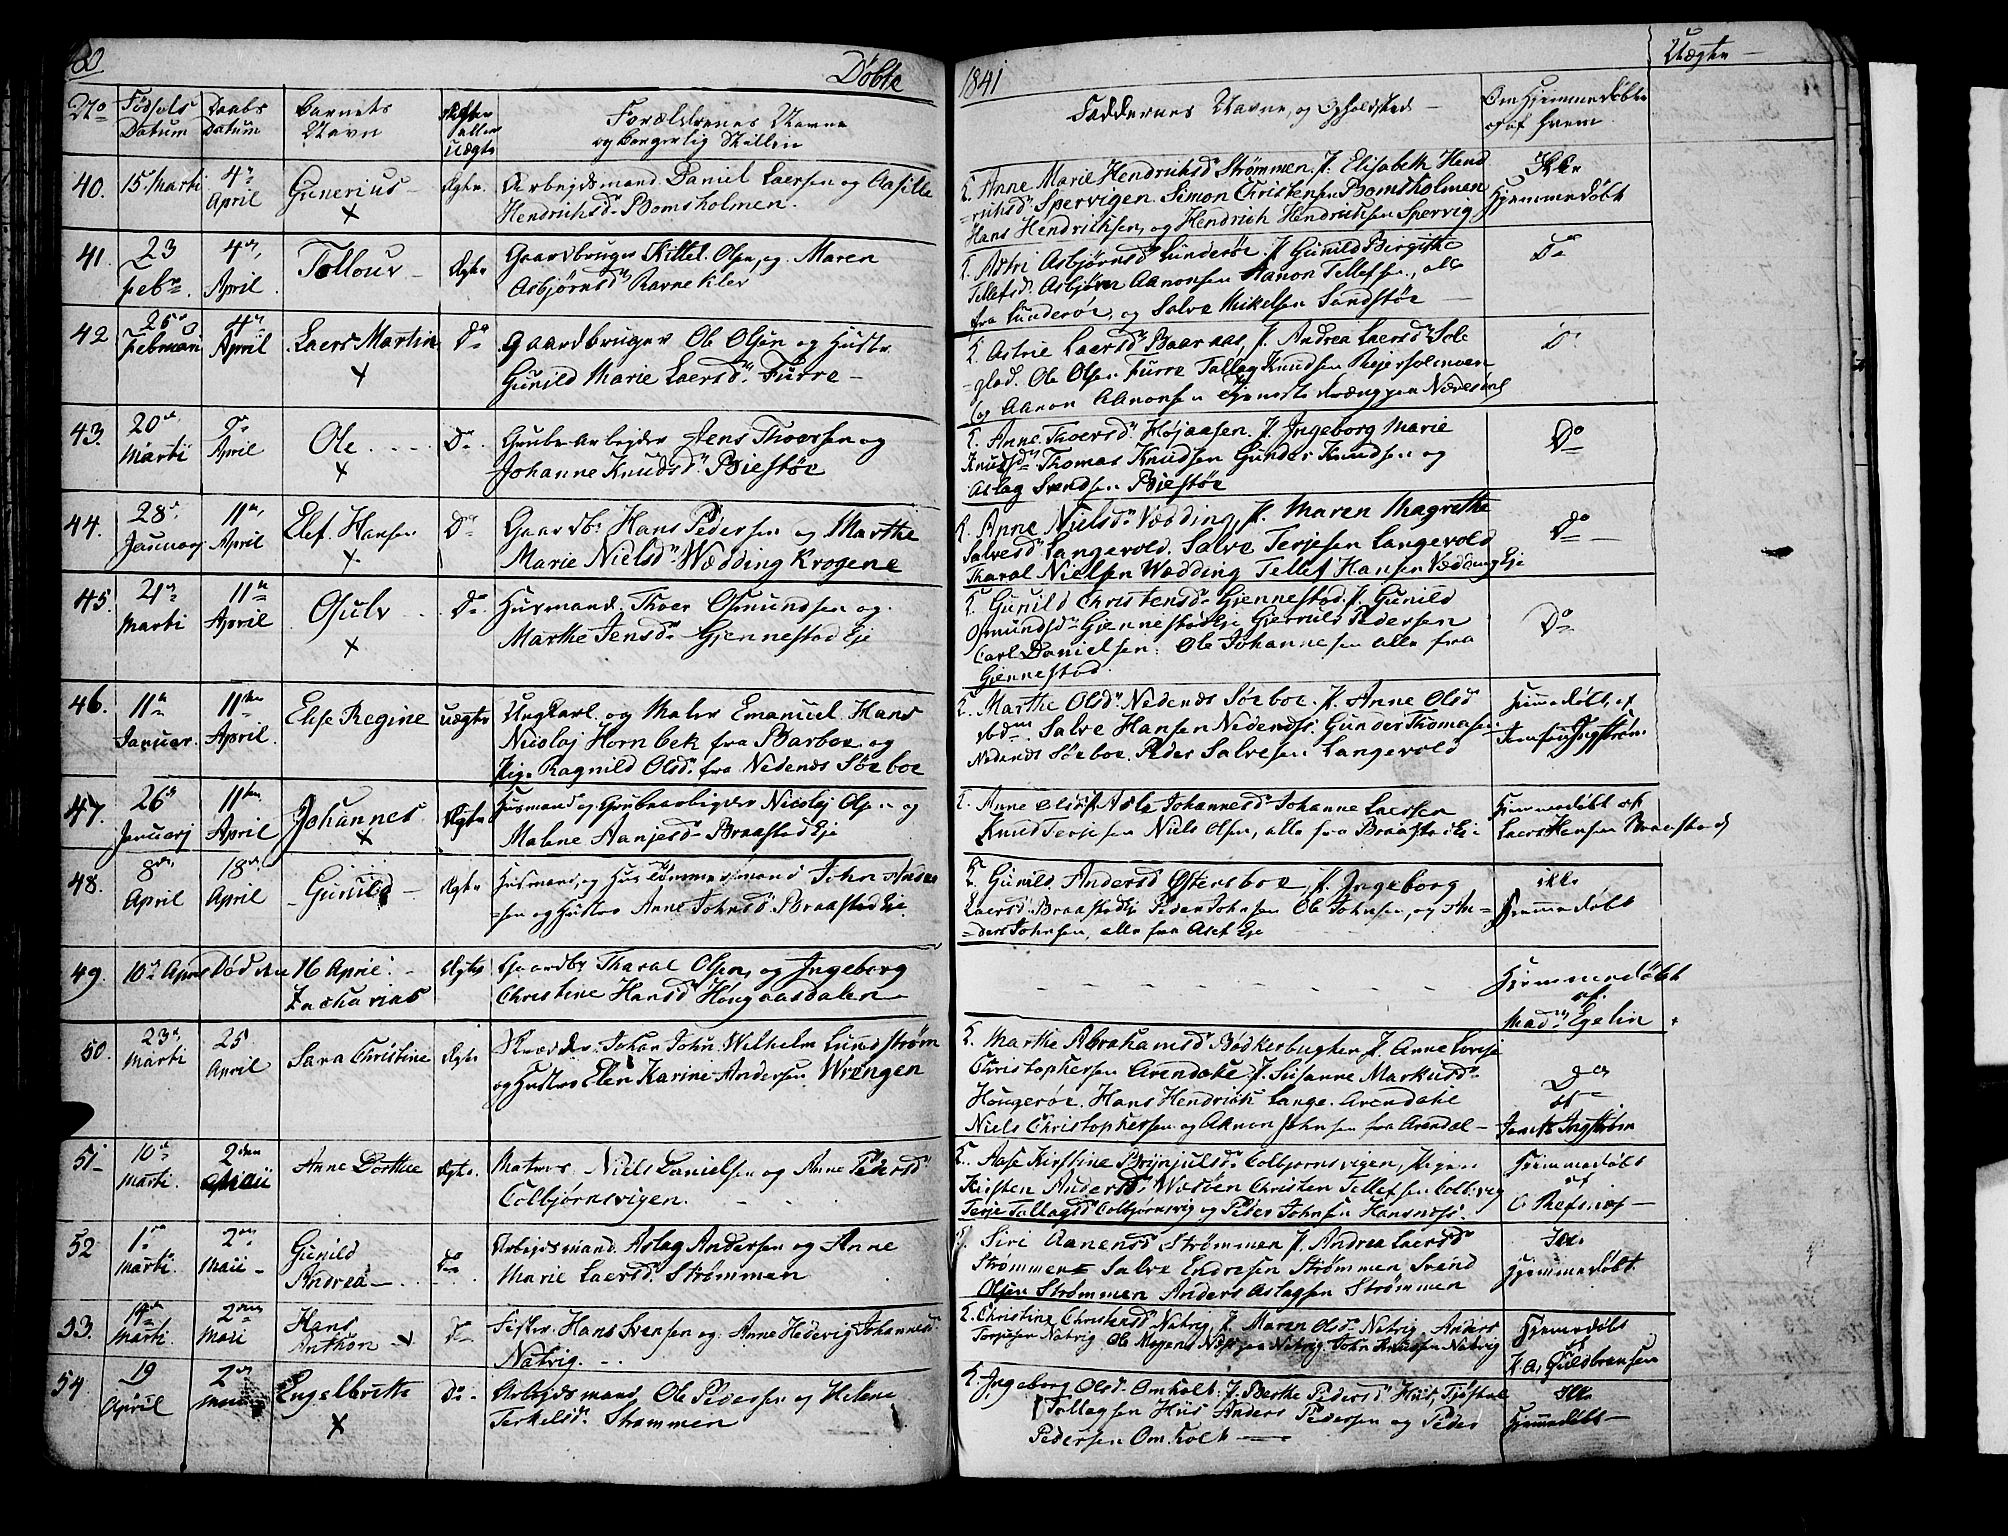 Døbte
1841
Uægte
No
Fødsels Datum
Daabs Datum
Barnets Navn
Ægte eller uægte
Forældrenes Navne
og borgerlig Stilling
Faddernes Navne, og Opholdsted
Om Hjemmedøbt
og af hvem
40.
15 Marti
4de April
Gunerius
Ægte
Arbejdsmand Daniel Laersen og Aasille
Hendrichsd. Bomsholmen.
K. Anne Marie Hendrichsd. Strømmen. P. Elisabeth Hend
richsd. Spervigen. Simon Christensen Bomsholmen
Hans Hendrichsen, og Hendrich Hendrichsen Spervig
Ikke
Hjemmedøbt
41.
23 Feb.
4de April
Tollouv
Ægte
Gaardbruger Kittel Olsen, og Maren
Asbjørnsd. Ravneklev
K. Astri Asbjørnsd. Lunderøe. P. Gunild Bergitte
Tellefsd. Asbjørn Aanonsen Aanon Tellefsen, alle
fra Lunderøe, og Salve Mikelsen Sandstøe
Do
42
Februar
4de April
Laers Martin
Do
Gaardbruger Ole Olsen og Hustr.
Gunild Marie Laersd. Furre
K. Astrie Laersd. Baaraas, P. Andrea Laersd.
Ole Olsen Furre Tallag Knudsen
og Aanon Aanonsen
Do
43.
20de Marti
April
Ole
Do
Grubearbejder Jens Thoersen og
Johanne Knudsd. Biestøe
K. Anne Thoersd. Højaasen. P. Ingeborg Marie
Knudsd. Thomas Knudsen Gunder Knudsen og
Aslag Svendsen Biestøe
Do
44.
28de Januarj
11te April
Elef. Hansen
Do
Gaardbr. Hans Pedersen og Marthe
Marie Nielsd. Wædding Krogene
K. Anne Nielsd. Vædding, P. Maren Magrethe
Salvesd. Langevold. Salve Terjesen Langevold
Tharal Nielsen Wædding Tellef Hansen Vædding Eje
Do
45.
21de Marti
11te April
Gulv
Do
Husmand Thoer Osmundsen og
Marthe Jensd. Gjennestad Eje
K. Gunild Christensd. Gjennestad. P. Gunild
Osmundsd. Gjennestad Eje Gjerruls Pedersen
Carl Danielsen. Ole Johannesen alle fra
Gjennestad
Do
46.
11te Januar.
11te April.
Else Regine
uægte
Ungkarl og Maler Emanuel Hans
Nicolaj Hornbek fra Barboe og
Pige Ragnild Olsd. fra Nedenæs Søeboe
K. Marthe Olsd. Nedenæs Søeboe. P. Anne Olsd
Salve Hansen Nedenæs. Gunder Thomasen
Nedenæs Søeboe. Peder Salvesen Langevold
47.
26de Januarj
11te April
Johannes
Ægte
Husmand og Grubearbejder Nicolaj Olsen og
Malene Aanjesd. Braastad Eje
K. Anne Olsd. P. Asle Johannesd. Johanne Laersen
Knud Terjesen Niels Olsen, alle fra Braastad Eje
Hjemmedøbt af
Laers Hansen Braastad
48.
8de April
18de April
Gunild
Ægte
Husmand, og Hustømmermand John Ander
sen og Hustroe Anne Johnsd. Braastad Eje.
K. Gunild Andersd Østerboe, P. Ingeborg
Laersd. Braastad Eje Peder Johnsen Ole Johnsen, og An
ders Johnsen, alle fra Aset Eje
ikke
Hjemmedøbt
49.
10de April
Død den 16 April
Zacharias
Ægte
Gaardbr. Tharal Olsen, og Ingeborg
Christine Hansd. Hougaasdalen
Hjemmedøbt
af
Mad. Egelin
50.
23de Marti
25 April
Sara Christine
Ægte
Skrædder Johan John Wilhelm Lundstrøm
og Hustroe Elen Karine Andersen Wrengen
K. Marthe Abrahamsd. Bødkerbugten P. Anne Lovise
Christophersen Arendahl. P. Susanne Markusd.
Hougerøe. Hans Hendrich Lange. Arendahl
Niels Christophersen og Aanon Johnsen fra Arendal
Do
af
51
10de Marti.
2den Maii
Anne Dorthea
Ægte
Matros Niels Danielsen og Anne Pedersd
Colbjørnsvigen.
K. Aase Kirstine Brynjulsd. Colbjørnsvigen, Pigen
Kirsten Andersd. Christen Tellefsen
Terje Tallagsd Colbjørnsvig og Peder Johnsen
Hjemmedøbt
af
52
1ste Marti.
2den Maii
Gunild
Andrea
Do
Arbejdsmand Aslag Andersen og Anne
Marie Laersd. Strømmen
K. Siri Aanensd Strømmen P. Andrea Laersd
Strømmen Salve Endresen Strømmen, Svend
Olsen Strømmen Anders Aslagsen Strømmen
Ikke
Hjemmedøbt.
53.
Marti.
2den Maii
Hans
Anthon
Do
Fisker Hans Svensen og Anne Hedevig Johannesd
Natvig.
K. Christine Christensd Natvig P. Maren Olsd. Natvig. Anders
Terjesen Natvig Ole Mogens Natvig John Knudsen Natvig
Hjemmedøbt
af
Guldbransen
54
19 April
2den
Engelbritte
Do
Arbejdsmand, Ole Pedersen og Helene
Terkelsd. Strømmen
K. Ingeborg Olsd. Omholt. P. Berthe Pedersd. Huus, Tjøstel
Tollagsen Huus Anders Pedersen og Peder
Pedersen Omholt
Ikke
Hjemmedøbt